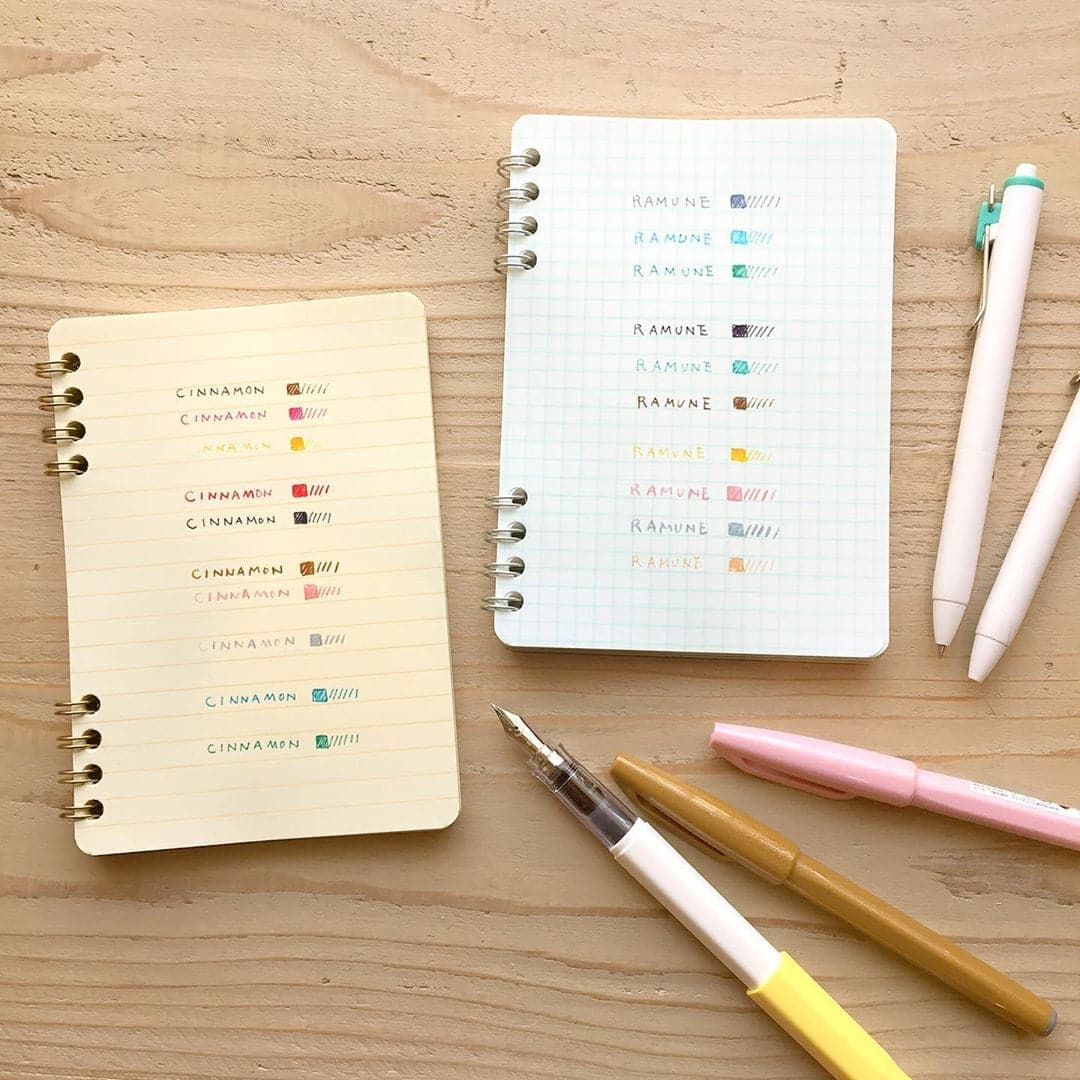 CINNAMON
CINNAMON
INNAMON
CINNAMON
CINNAMON
CINNAMON
CINNAMON
CINNAMON
CINNAMON
CINNAMON
RAMUNE
RAMUNE
RAMUNE
RAMUNE
RAMUNE
RAMUNE
RAMUNE
RAMUNE
RAMUNE
RAMUNE